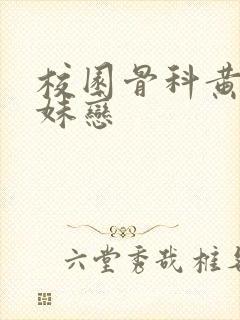 校園骨科黃
妹戀
六堂秀哉框